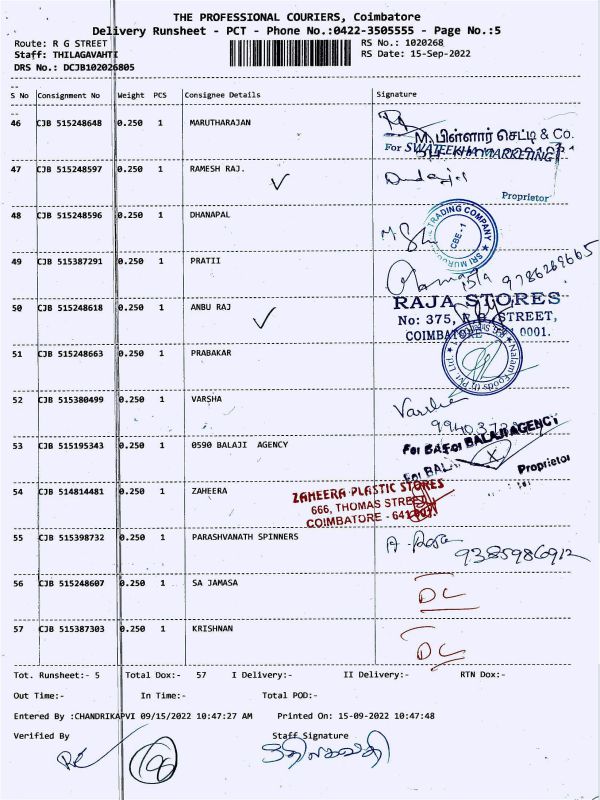 THE PROFESSIONAL COURIERS, Coimbatore
Delivery Runsheet - PCT - Phone No.:0422-3505555 - Page No.:5
Route: R G STREET RS No.: 1020268
Staff: THILAGAVAHTI RS Date: 15-Sep-2022
DRS No.: DCJB102026805
S No Consignment No Weight PCS Consignee Details Signature
46 CJB 515248648 0.250 1 MARUTHARAJAN
M. பிள்ளார் செட்டி & Co.
For SWATEEKHA MARKETING
47 CJB 515248597 0.250 1 RAMESH RAJ.
Proprietor
48 CJB 515248596 0.250 1 DHANAPAL
TRADING COMPANY CBE-1 SRI MURU
49 CJB 515387291 0.250 1 PRATII
9786269665
50 CJB 515248618 0.250 1 ANBU RAJ
RAJA STORES
No: 375, R.G. STREET,
COIMBATORE 1 0001.
51 CJB 515248663 0.250 1 PRABAKAR
Foods (I) Pvt. Ltd.
52 CJB 515380499 0.250 1 VARSHA
Varsha
53 CJB 515195343 0.250 1 0590 BALAJI AGENCY
For BALAJI AGENCY
For BALA
Proprietor
54 CJB 514814481 0.250 1 ZAHEERA
ZAHEERA PLASTIC STORES
666, THOMAS STREET
COIMBATORE - 641 001.
55 CJB 515398732 0.250 1 PARASHVANATH SPINNERS
9385986912
56 CJB 515248607 0.250 1 SA JAMASA
DC
57 CJB 515387303 0.250 1 KRISHNAN
DC
Tot. Runsheet:- 5 Total Dox:- 57 I Delivery:- II Delivery:- RTN Dox:-
Out Time:- In Time:- Total POD:-
Entered By :CHANDRIKAPVI 09/15/2022 10:47:27 AM Printed On: 15-09-2022 10:47:48
Verified By Staff Signature
திலகவதி